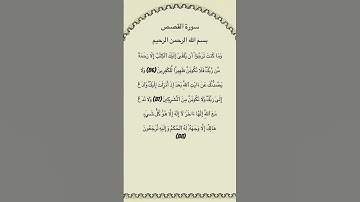 سورة القصص
بسم الله الرحمن الرحيم
وَمَا كُنتَ تَرْجُوٓا۟ أَن يُلْقَىٰٓ إِلَيْكَ ٱلْكِتَٰبُ إِلَّا رَحْمَةً
مِّن رَّبِّكَ فَلَا تَكُونَنَّ ظَهِيرًا لِّلْكَٰفِرِينَ (86) وَلَا
يَصُدُّنَّكَ عَنْ ءَايَٰتِ ٱللَّهِ بَعْدَ إِذْ أُنزِلَتْ إِلَيْكَ وَٱدْعُ
إِلَىٰ رَبِّكَ وَلَا تَكُونَنَّ مِنَ ٱلْمُشْرِكِينَ (87) وَلَا تَدْعُ
مَعَ ٱللَّهِ إِلَٰهًا ءَاخَرَ لَآ إِلَٰهَ إِلَّا هُوَ كُلُّ شَىْءٍ
هَالِكٌ إِلَّا وَجْهَهُۥ لَهُ ٱلْحُكْمُ وَإِلَيْهِ تُرْجَعُونَ
(88)